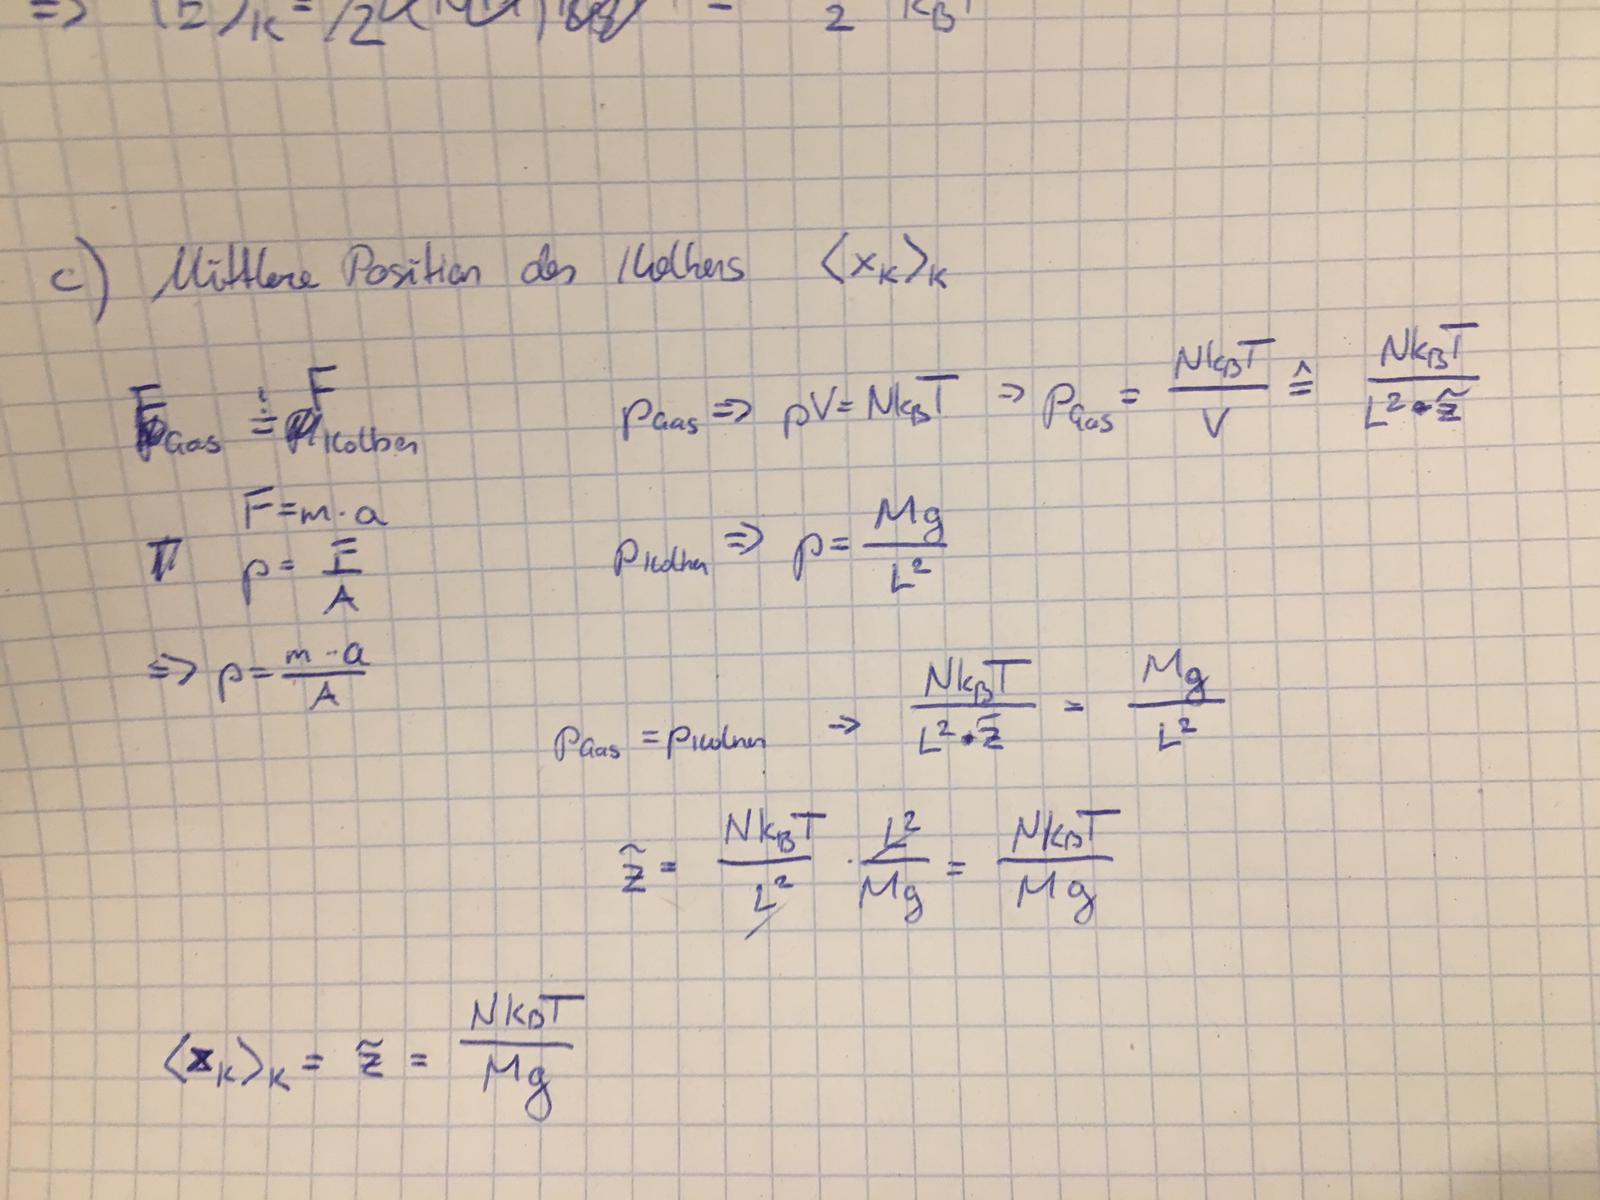 c) Mittlere Position des Kolbens ⟨x_K⟩_K
F_Gas =! F_Kolben
p_Gas => pV = Nk_BT => p_Gas = Nk_BT / V ≙ Nk_BT / L² · z̃
F = m · a
p = F / A
p_Kolben => p = Mg / L²
=> p = m · a / A
p_Gas = p_Kolben → Nk_BT / L² · z̃ = Mg / L²
z̃ = Nk_BT / L² · L² / Mg = Nk_BT / Mg
⟨z_K⟩_K = z̃ = Nk_BT / Mg